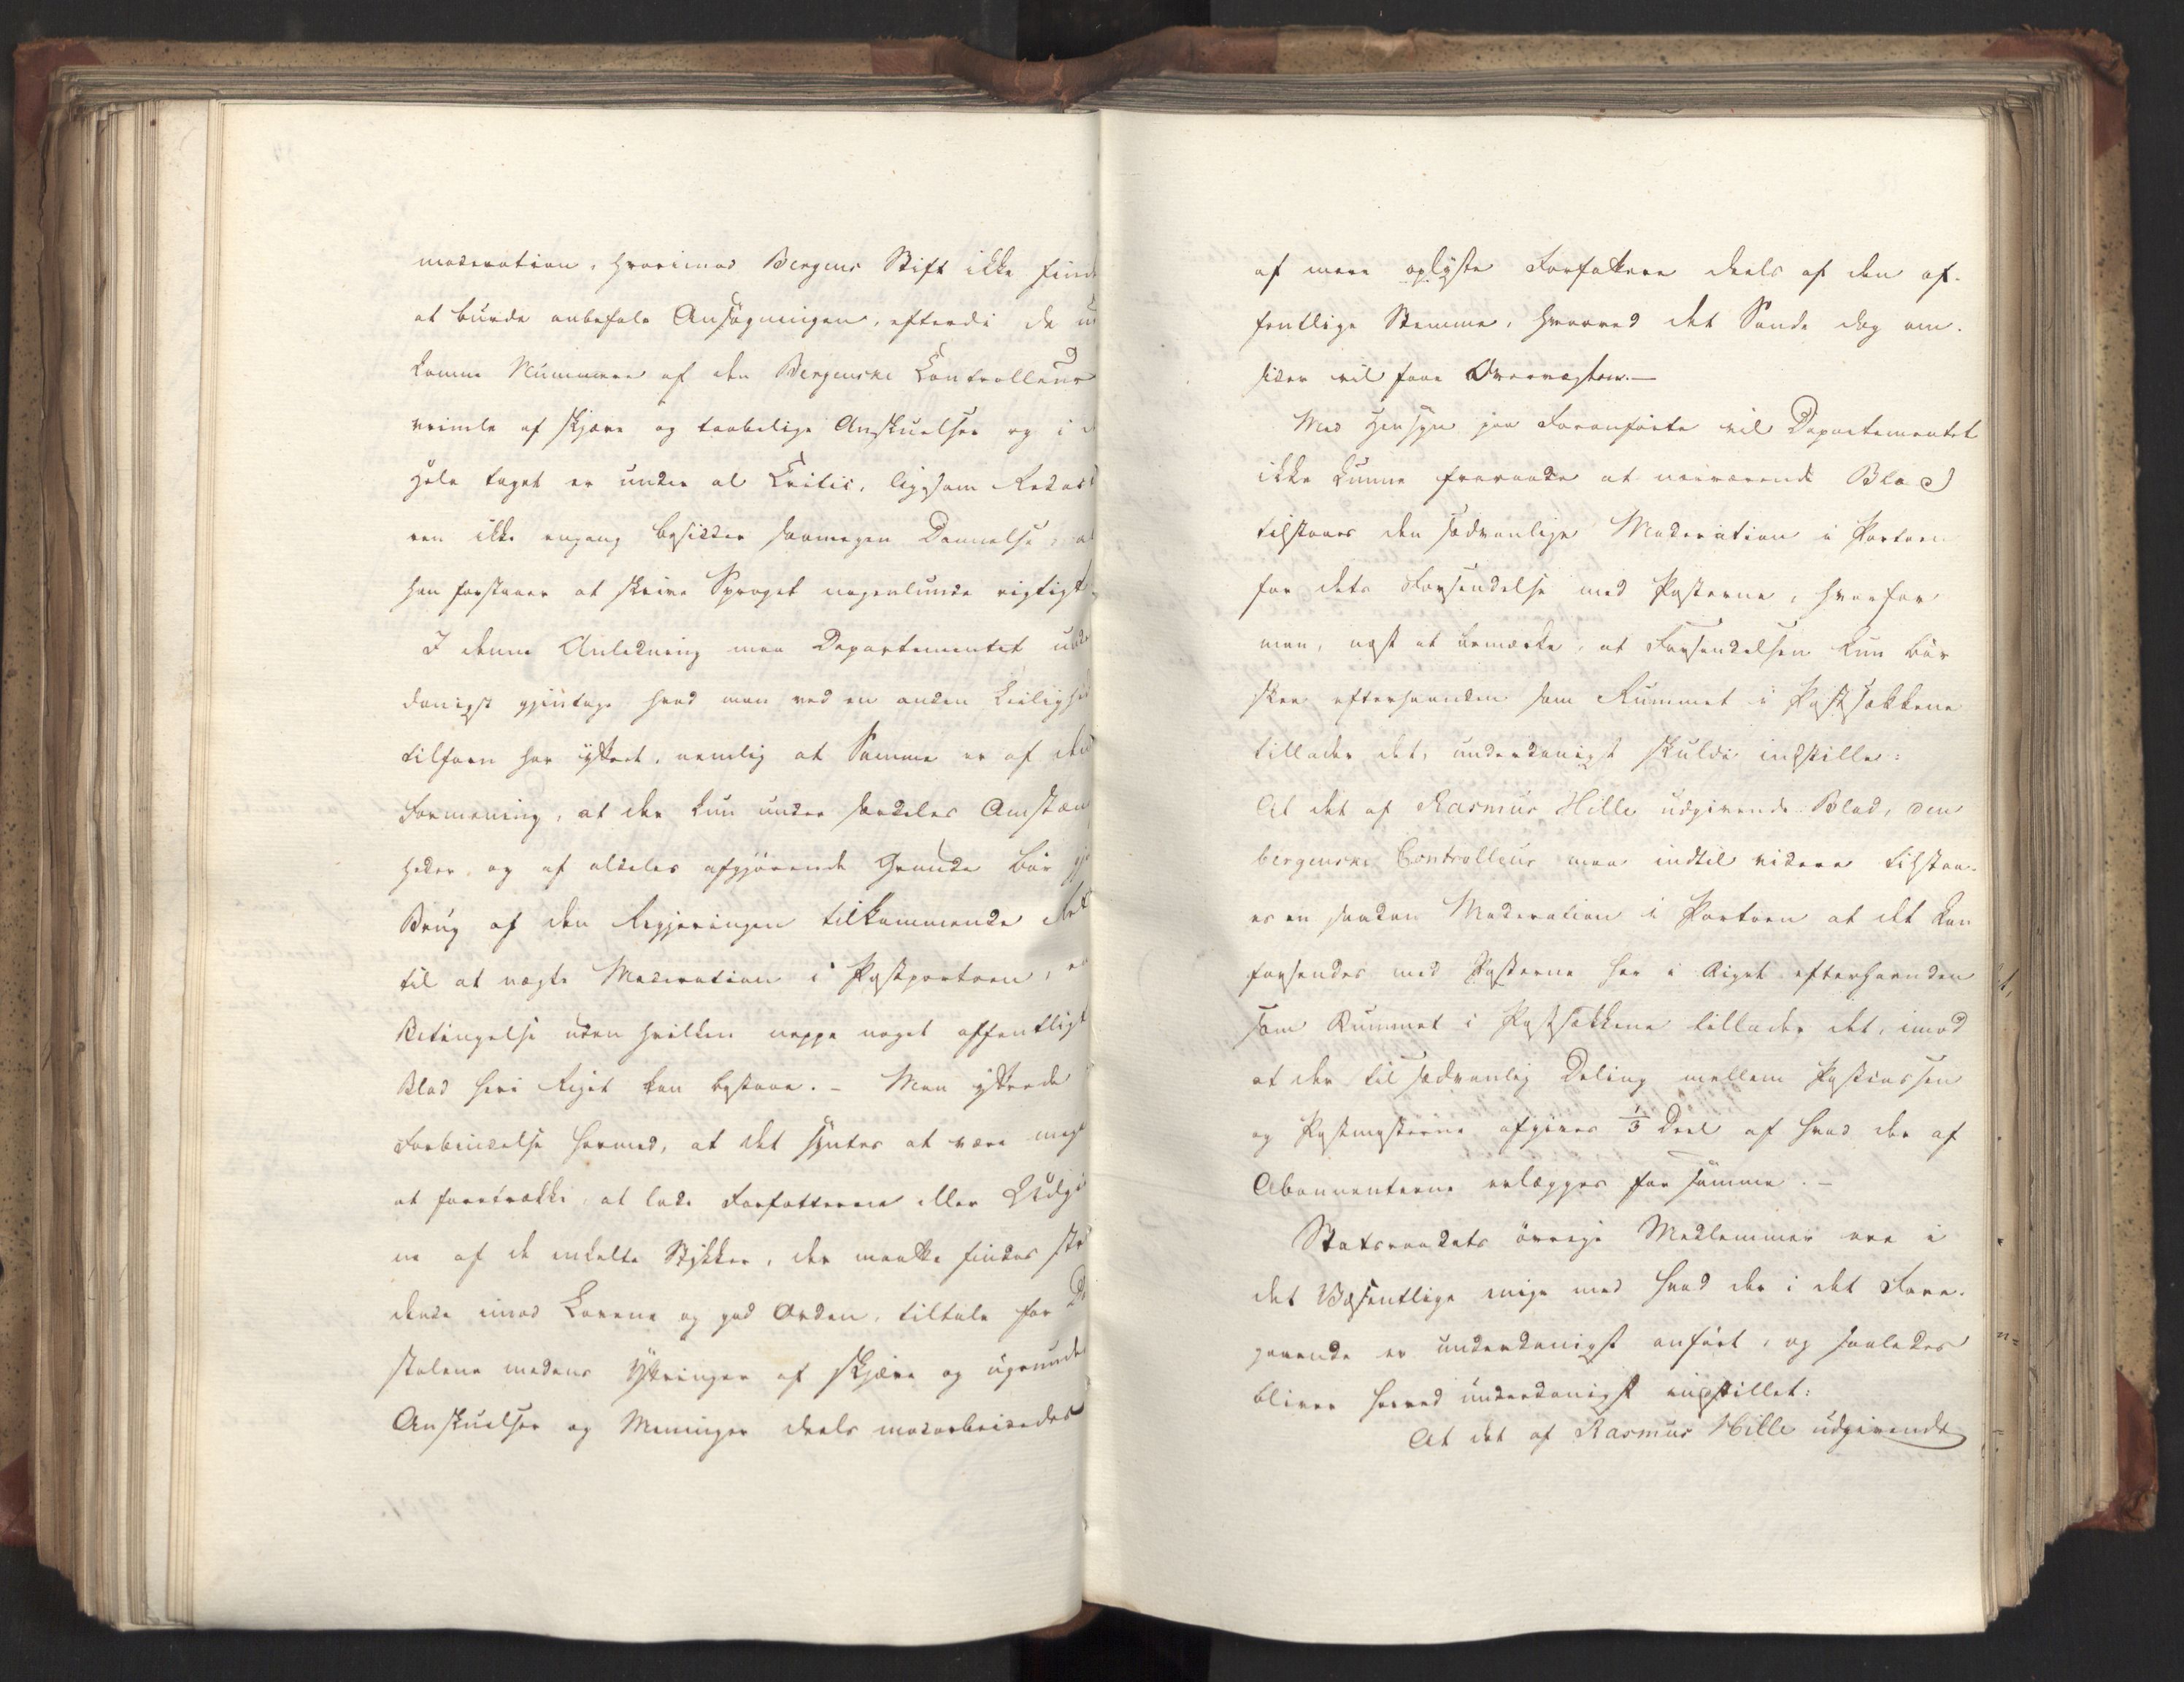 moderation, hvorimod Bergens Stift ikke find
at burde anbefale Ansøgningen, efterdi de u
komne Nummere af den Bergenske Controlleur
vrimle af skjæve og taabelige Anskuelser og i d
Hele taget er under al Critic, ligesom Redact
ren ikke engang besidder saamegen Dannelse at
han forstaaer at skrive Sproget nogenlunde rigtigt.
I denne Anledning maa Departementet und
danigst gjentage hvad man ved en anden Leilighed
tilforn har yttret, nemlig at Samme er af den
Formening, at der kun under særdeles Omstæn
heder, og af aldeles afgjørende Grunde bør gjø
Brug af den Regjeringen tilkommende Ret
til at nægte Moderation i Postportoen, en
Betingelse uden hvilken neppe noget offentligt
Blad heri Riget kan bestaae. - Man yttrede
Forbindelse hermed, at det syntes at være meg
at foretrække, at lade Forfatterne eller Udgi
ne af de enkelte Stykker, der maatte findes stri
dende imod Lovene og god Orden, tiltale for Do
stolene medens Yttringer af skjæve og ugrunde
Anskuelser og Meninger deels modarbeidedes
af mere oplyste Forfattere deels af den of-
fentlige Stemme, hvorved det Sande dog om-
sider vil faae Overvægten. -
Med Hensyn paa Foranførte vil Departementet
ikke kunne fraraade at nærværende Blad
tilstaaes den sædvanlige Moderation i Portoen
for dets Forsendelse med Posterne, hvorfor
man, næst at bemærke, at Forsendelsen kun bør
skee efterhaanden som Rummet i Postsækkene
tillader det, underdanigst skulde indstille:
At det af Rasmus Hille udgivende Blad, den
bergenske Controlleur maa indtil videre tilstaa-
es en saadan Moderation i Portoen at det kan
forsendes med Posterne her i Riget efterhaanden
som Rummet i Postsækkene tillader det, imod
at der til sædvanlig Deling mellem Postcassen
og Postmesterne afgives 1/3 Deel af hvad der af
Abonnenterne erlægges for samme. -
Statsraadets øvrige Medlemmer ere i
det Væsentlige enige med hvad der i det Fore-
gaaende er underdanigst anført, og saaledes
bliver herved underdanigst indstillet:
At det af Rasmus Hille udgivende